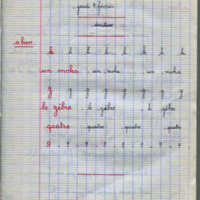 jeudi 9 février
écriture
a bien k l l l l l l k
un moka . un moka . un moka
z z z z z z z z
le zèbre le zèbre le zèbre
quatre . quatre . quatre . quatre
9 . 9 . 9 . 9 . 9 . 9 . 9 . 9